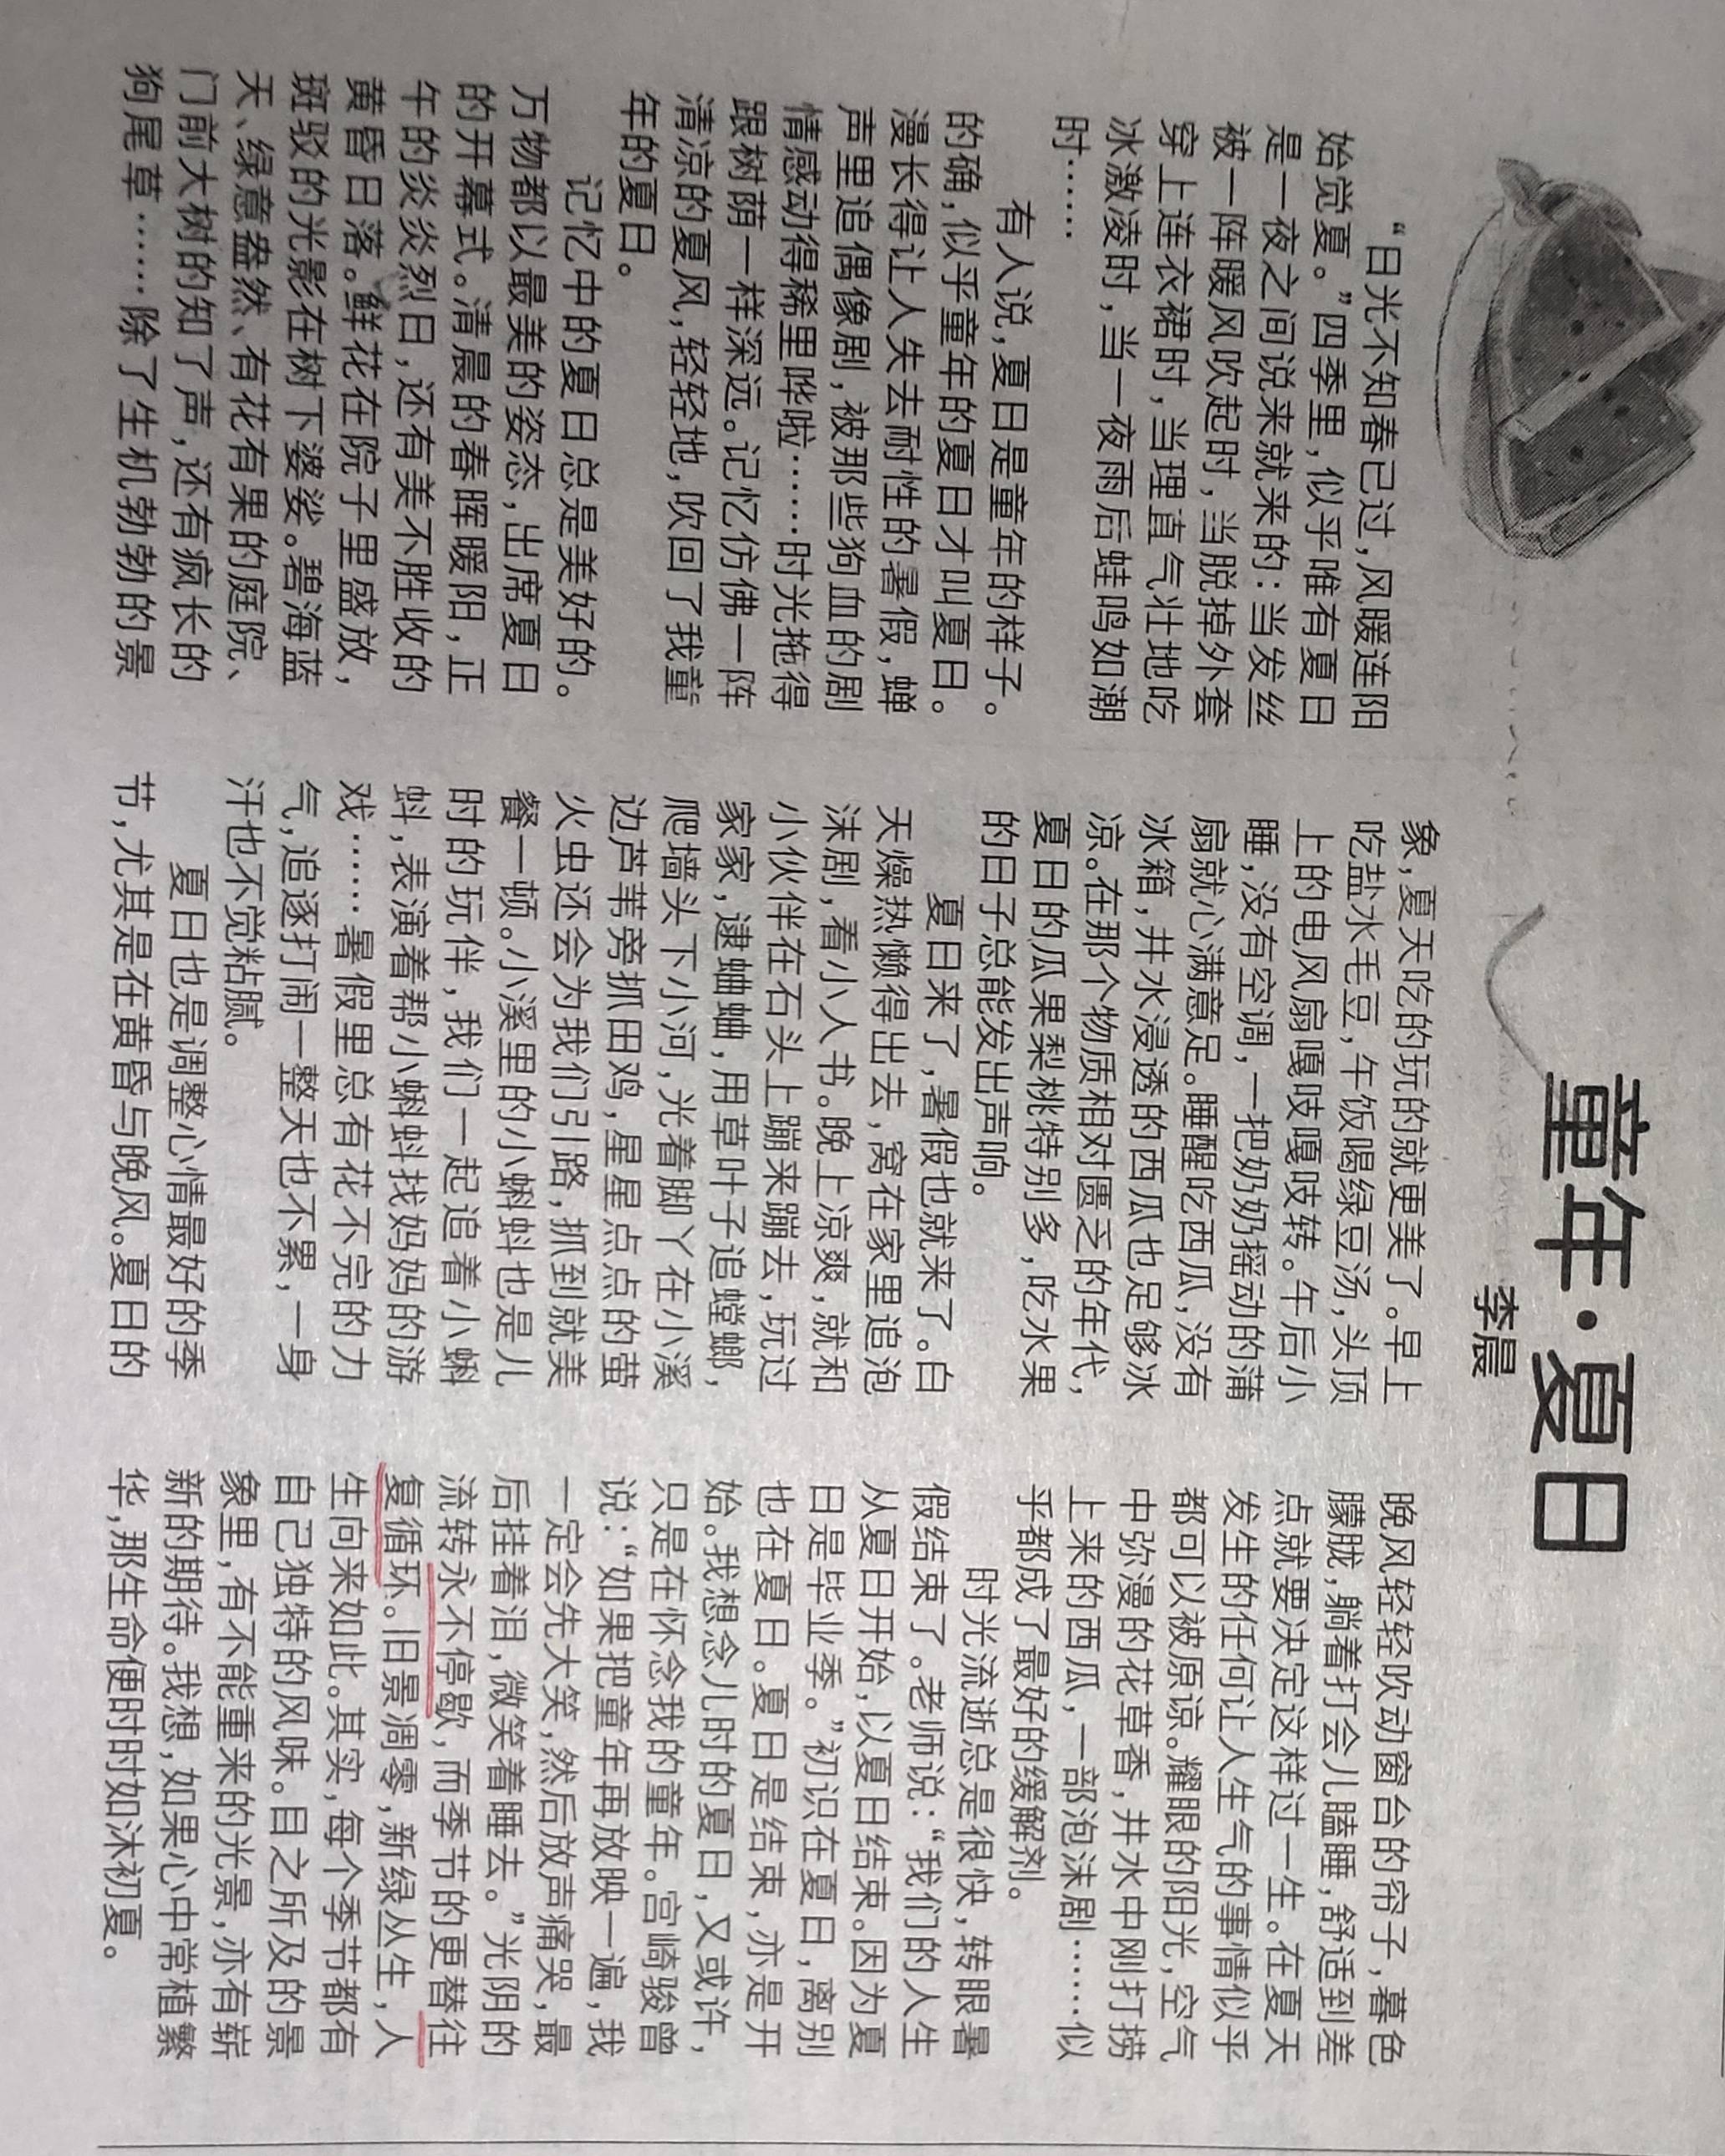 童年·夏日
李晨
“日光不知春已过，风暖连阳
始觉夏。”四季里，似乎唯有夏日
是一夜之间说来就来的：当发丝
被一阵暖风吹起时，当脱掉外套
穿上连衣裙时，当理直气壮地吃
冰激凌时，当一夜雨后蛙鸣如潮
时……
有人说，夏日是童年的样子。
的确，似乎童年的夏日才叫夏日。
漫长得让人失去耐性的暑假，蝉
声里追偶像剧，被那些狗血的剧
情感动得稀里哗啦……时光拖得
跟树荫一样深远。记忆仿佛一阵
清凉的夏风，轻轻地，吹回了我童
年的夏日。
记忆中的夏日总是美好的。
万物都以最美的姿态，出席夏日
的开幕式。清晨的春晖暖阳，正
午的炎炎烈日，还有美不胜收的
黄昏日落。鲜花在院子里盛放，
斑驳的光影在树下婆娑。碧海蓝
天、绿意盎然、有花有果的庭院、
门前大树的知了声，还有疯长的
狗尾草……除了生机勃勃的景
象，夏天吃的玩的就更美了。早上
吃盐水毛豆，午饭喝绿豆汤，头顶
上的电风扇嘎吱嘎吱转。午后小
睡，没有空调，一把奶奶摇动的蒲
扇就心满意足。睡醒吃西瓜，没有
冰箱，井水浸透的西瓜也足够冰
凉。在那个物质相对匮乏的年代，
夏日的瓜果梨桃特别多，吃水果
的日子总能发出声响。
夏日来了，暑假也就来了。白
天燥热懒得出去，窝在家里追泡
沫剧，看小人书。晚上凉爽，就和
小伙伴在石头上蹦来蹦去，玩过
家家，逮蛐蛐，用草叶子追螳螂，
爬墙头下小河，光着脚丫在小溪
边芦苇旁抓田鸡，星星点点的萤
火虫还会为我们引路，抓到就美
餐一顿。小溪里的小蝌蚪也是儿
时的玩伴，我们一起追着小蝌
蚪，表演着帮小蝌蚪找妈妈的游
戏……暑假里总有花不完的力
气，追逐打闹一整天也不累，一身
汗也不觉粘腻。
夏日也是调整心情最好的季
节，尤其是在黄昏与晚风。夏日的
晚风轻轻吹动窗台的帘子，暮色
朦胧，躺着打会儿瞌睡，舒适到差
点就要决定这样过一生。在夏天
发生的任何让人生气的事情似乎
都可以被原谅。耀眼的阳光，空气
中弥漫的花草香，井水中刚打捞
上来的西瓜，一部泡沫剧……似
乎都成了最好的缓解剂。
时光流逝总是很快，转眼暑
假结束了。老师说：“我们的人生
从夏日开始，以夏日结束。因为夏
日是毕业季。”初识在夏日，离别
也在夏日。夏日是结束，亦是开
始。我想念儿时的夏日，又或许，
只是在怀念我的童年。宫崎骏曾
说：“如果把童年再放映一遍，我
一定会先大笑，然后放声痛哭，最
后挂着泪，微笑着睡去。”光阴的
流转永不停歇，而季节的更替往
复循环。旧景凋零，新绿丛生，人
生向来如此。其实，每个季节都有
自己独特的风味。目之所及的景
象里，有不能重来的光景，亦有崭
新的期待。我想，如果心中常植繁
华，那生命便时时如沐初夏。